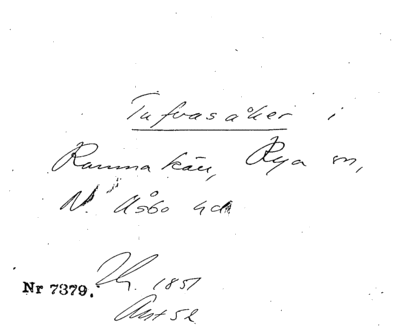 Tufvasåker i
Rammakärr, Rya sn,
N. Åsbo hd
Nr 7379. Lh. 1851
Akt 52